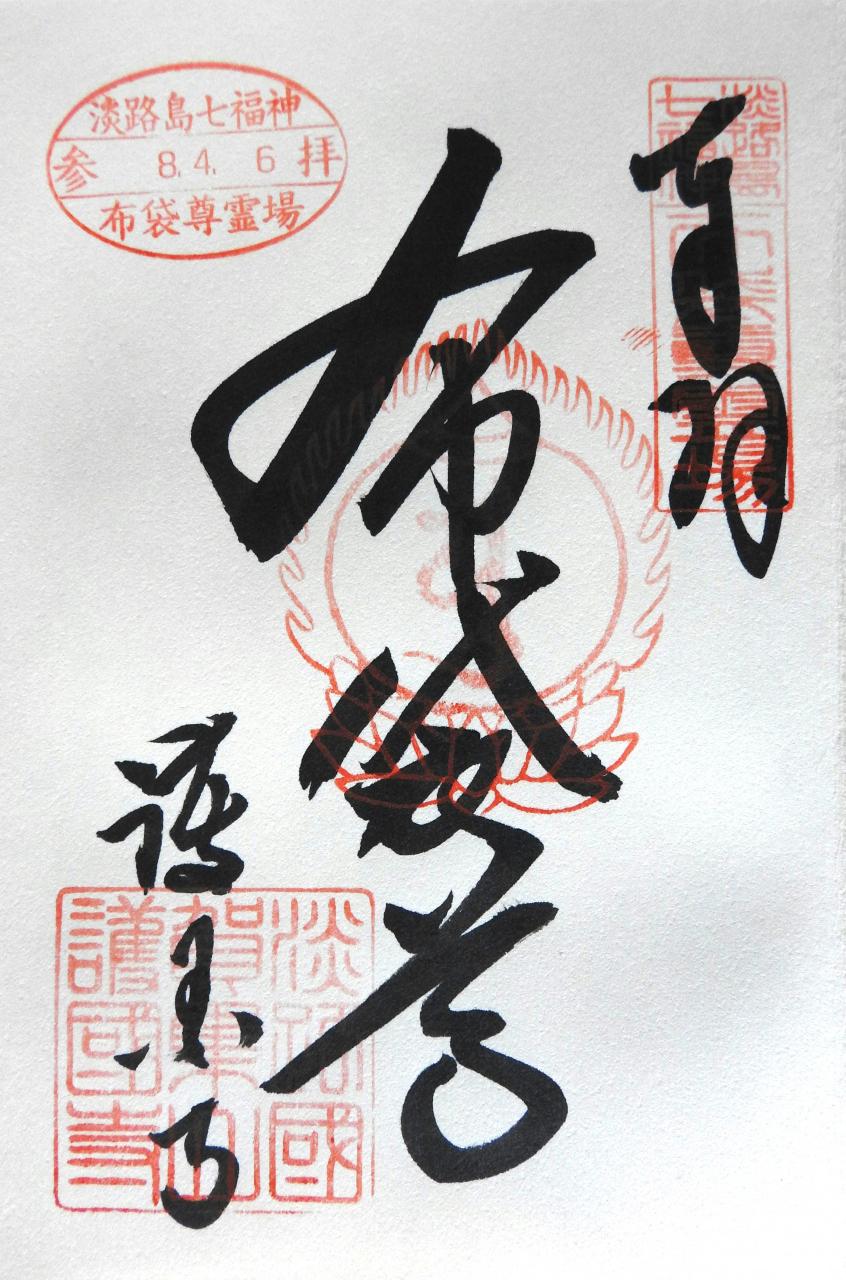 淡路島七福神
参 8.4. 6 拝
布袋尊霊場
奉拝
淡路島
七福神
布袋尊霊場
布袋尊
護国寺
淡路國
賀集山
護國寺